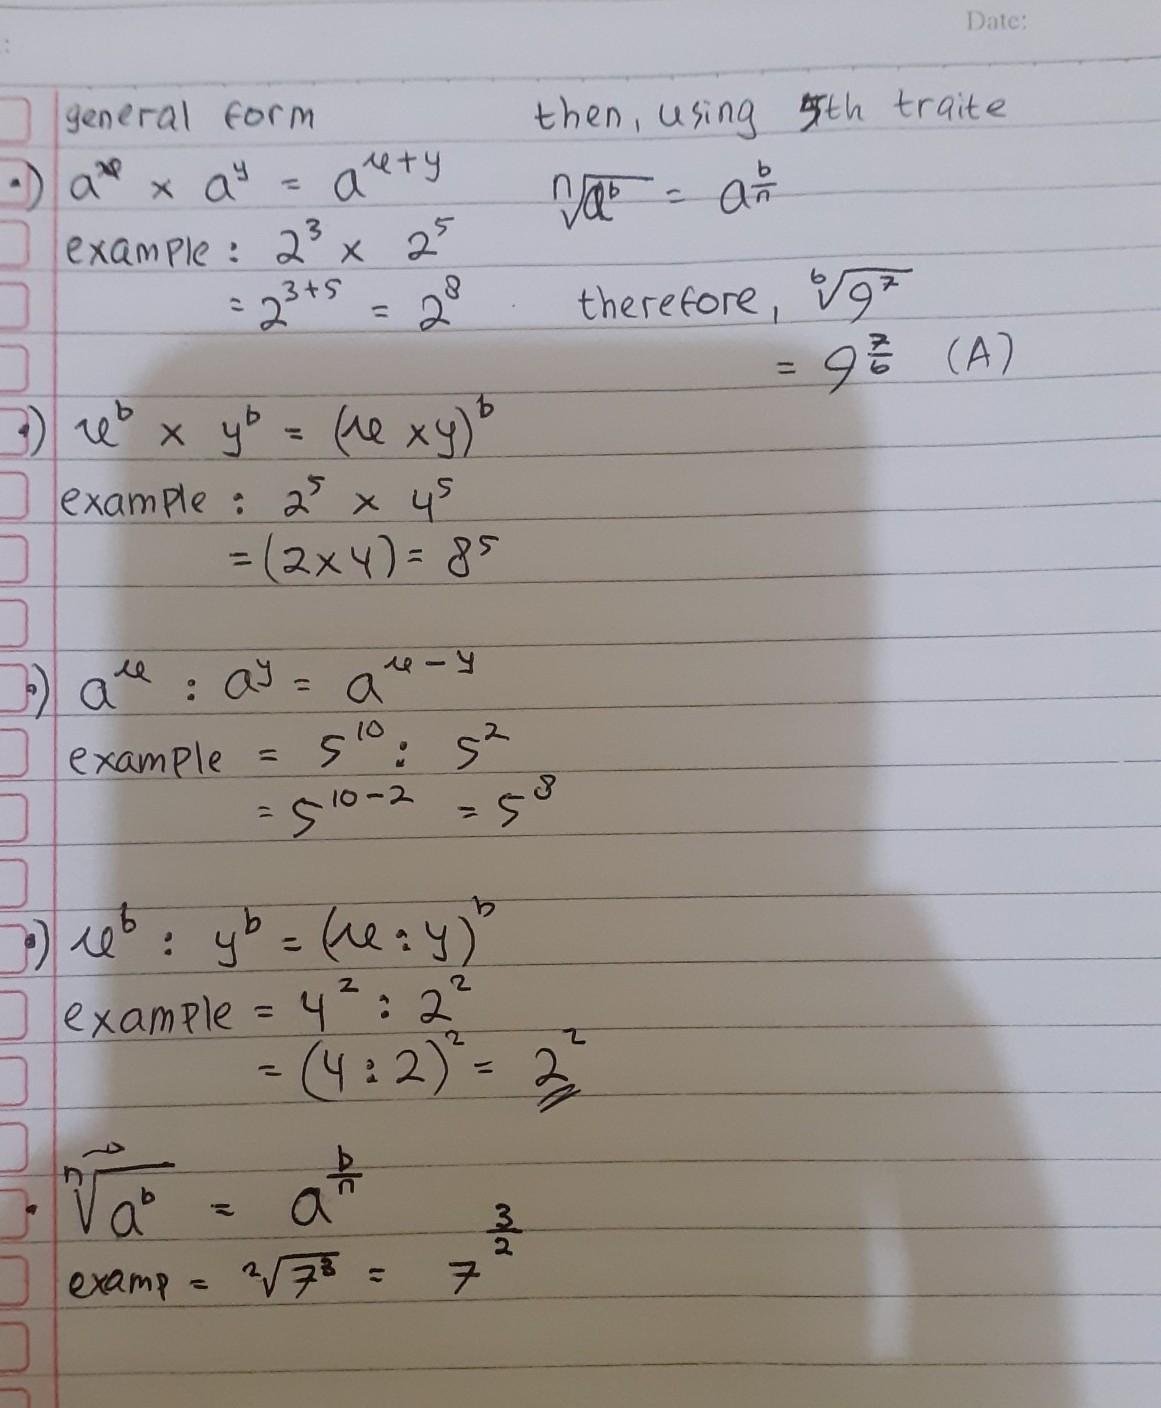 Date:
general form
•) aˣ × aʸ = aˣ⁺ʸ
example : 2³ × 2⁵
= 2³⁺⁵ = 2⁸
•) xᵇ × yᵇ = (x × y)ᵇ
example : 2⁵ × 4⁵
= (2×4) = 8⁵
•) aˣ : aʸ = aˣ⁻ʸ
example = 5¹⁰ : 5²
= 5¹⁰⁻² = 5⁸
•) xᵇ : yᵇ = (x : y)ᵇ
example = 4² : 2²
= (4 : 2)² = 2²
• ⁿ√aᵇ = a^(b/n)
examp = ²√7³ = 7^(3/2)
then, using 5th traite
ⁿ√aᵇ = a^(b/n)
therefore, ⁶√9⁷
= 9^(7/6) (A)